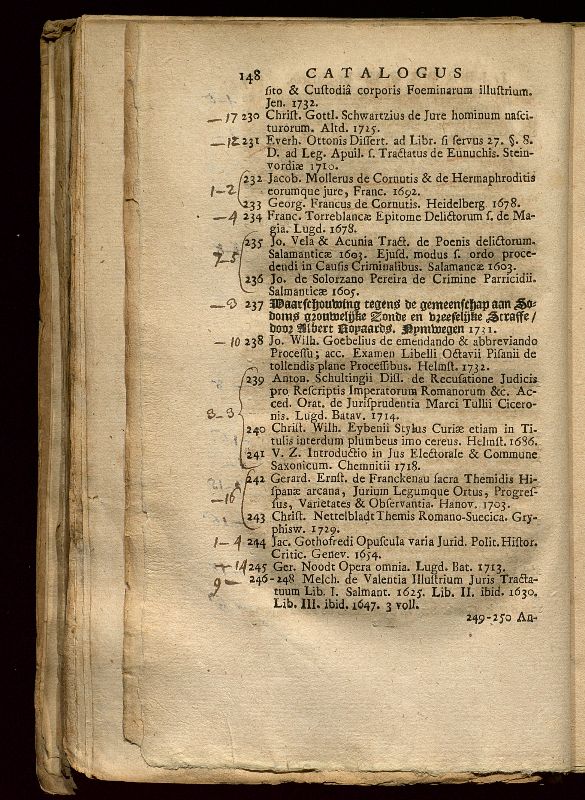 148 CATALOGUS
sito & Custodiâ corporis Foeminarum illustrium.
Jen. 1732.
—17 230 Christ. Gottl. Schwartzius de Jure hominum nasci-
turorum. Altd. 1725.
—12 231 Everh. Ottonis Dissert. ad Libr. si servus 27. §. 8.
D. ad Leg. Apuil. s. Tractatus de Eunuchis. Stein-
vordiæ 1710.
232 Jacob. Mollerus de Cornutis & de Hermaphroditis
1—2 eorumque jure, Franc. 1692.
233 Georg. Francus de Cornutis. Heidelberg 1678.
—4 234 Franc. Torreblancæ Epitome Delictorum s. de Ma-
gia. Lugd. 1678.
235 Jo. Vela & Acunia Tract. de Poenis delictorum.
Salamanticæ 1603. Ejusd. modus s. ordo proce-
7—5 dendi in Causis Criminalibus. Salamancæ 1603.
236 Jo. de Solorzano Pereira de Crimine Parricidii.
Salmanticæ 1605.
—3 237 Waarschouwing tegens de gemeenschap aan So-
doms grouwelijke Zonde en vreeselijke Straffe/
door Albert Royaards. Nymwegen 1731.
—10 238 Jo. Wilh. Goebelius de emendando & abbreviando
Processu; acc. Examen Libelli Octavii Pisanii de
tollendis plane Processibus. Helmst. 1732.
239 Anton. Schultingii Diss. de Recusatione Judicis
pro Rescriptis Imperatorum Romanorum &c. Ac-
ced. Orat. de Jurisprudentia Marci Tullii Cicero-
3—3 nis. Lugd. Batav. 1714.
240 Christ. Wilh. Eybenii Stylus Curiæ etiam in Ti-
tulis interdum plumbeus imo cereus. Helmst. 1686.
241 V. Z. Introductio in Jus Electorale & Commune
Saxonicum. Chemnitii 1718.
242 Gerard. Ernst. de Franckenau sacra Themidis Hi-
—16 spanæ arcana, Jurium Legumque Ortus, Progres-
sus, Varietates & Observantia. Hanov. 1703.
243 Christ. Nettelbladt Themis Romano-Suecica. Gry-
phisw. 1729.
1—4 244 Jac. Gothofredi Opuscula varia Jurid. Polit. Histor.
Critic. Genev. 1654.
14 245 Ger. Noodt Opera omnia. Lugd. Bat. 1713.
9— 246-248 Melch. de Valentia Illustrium Juris Tracta-
tuum Lib. I. Salmant. 1625. Lib. II. ibid. 1630.
Lib. III. ibid. 1647. 3 voll.
249-250 An-